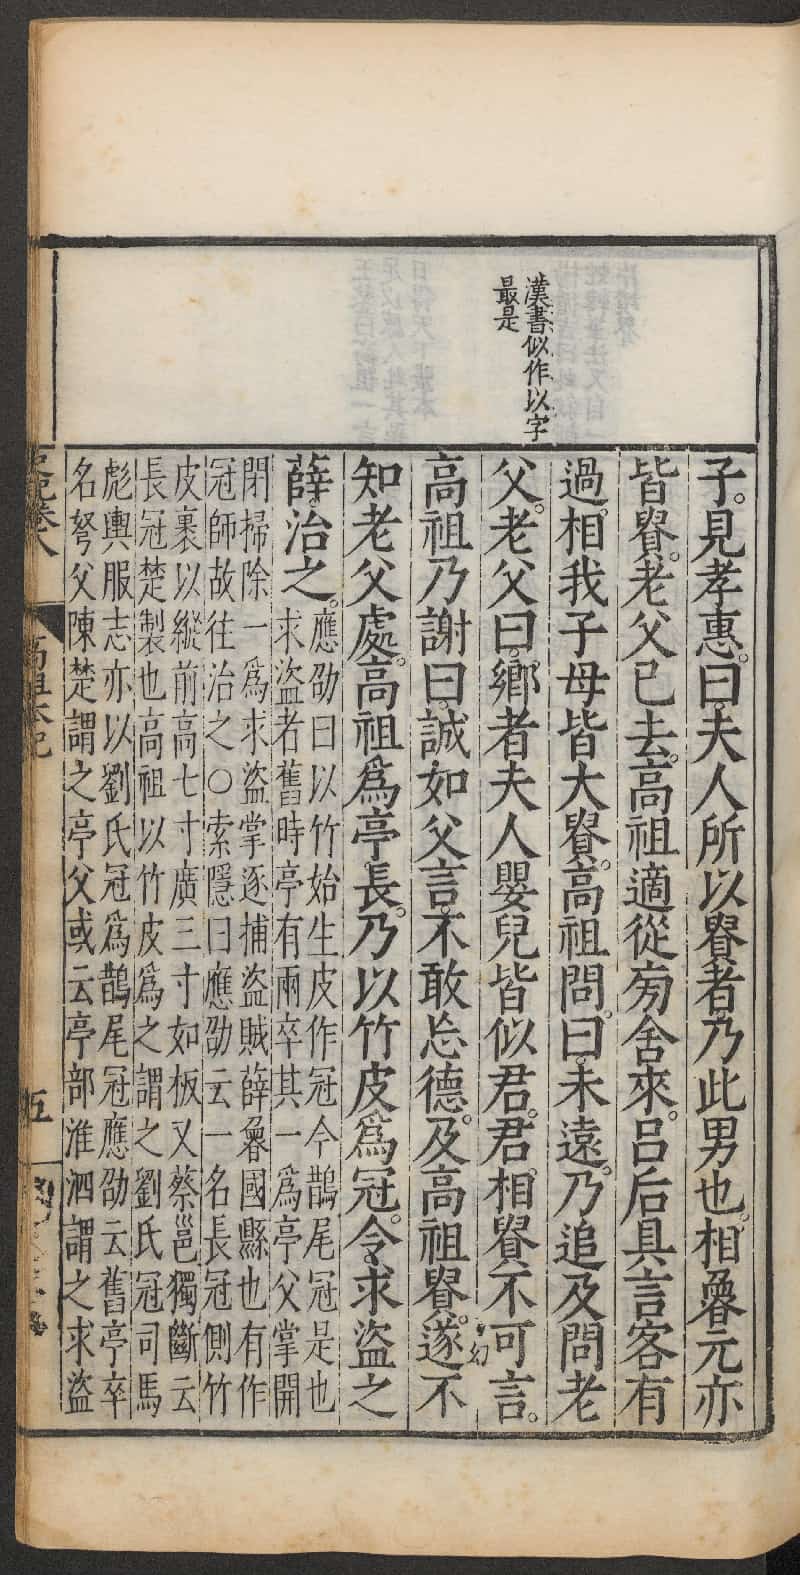 漢書似作以字
最是
子。見孝惠。曰夫人所以貴者乃此男也。相魯元亦
皆貴。老父已去。高祖適從旁舍來。呂后具言客有
過相我子母皆大貴。高祖問。曰未遠。乃追及問老
父。老父曰。鄉者夫人嬰兒皆似君。君相貴不可言。
高祖乃謝曰。誠如父言。不敢忘德。及高祖貴。遂不
知老父處。高祖爲亭長。乃以竹皮爲冠。令求盜之
薛治之。
應劭曰以竹始生皮作冠今鵲尾冠是也
求盜者舊時亭有兩卒其一爲亭父掌開
閉掃除一爲求盜掌逐捕盜賊薛魯國縣也有作
冠師故往治之○索隱曰應劭云一名長冠側竹
皮裹以縱前高七寸廣三寸如板又蔡邕獨斷云
長冠楚製也高祖以竹皮爲之謂之劉氏冠司馬
彪輿服志亦以劉氏冠爲鵲尾冠應劭云舊亭卒
名弩父陳楚謂之亭父或云亭部淮泗謂之求盜
史記卷八
高祖本紀
五